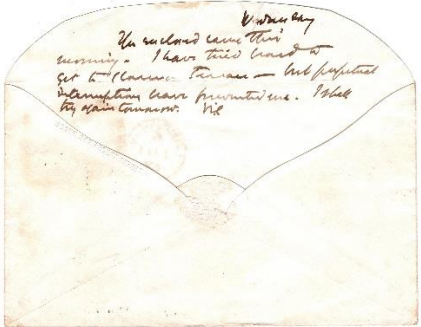 Wednesday
The enclosed came this
morning. I have tried hard to
get to Clarence Terrace — but perpetual
interruptions have prevented me. I shall
try again tomorrow.